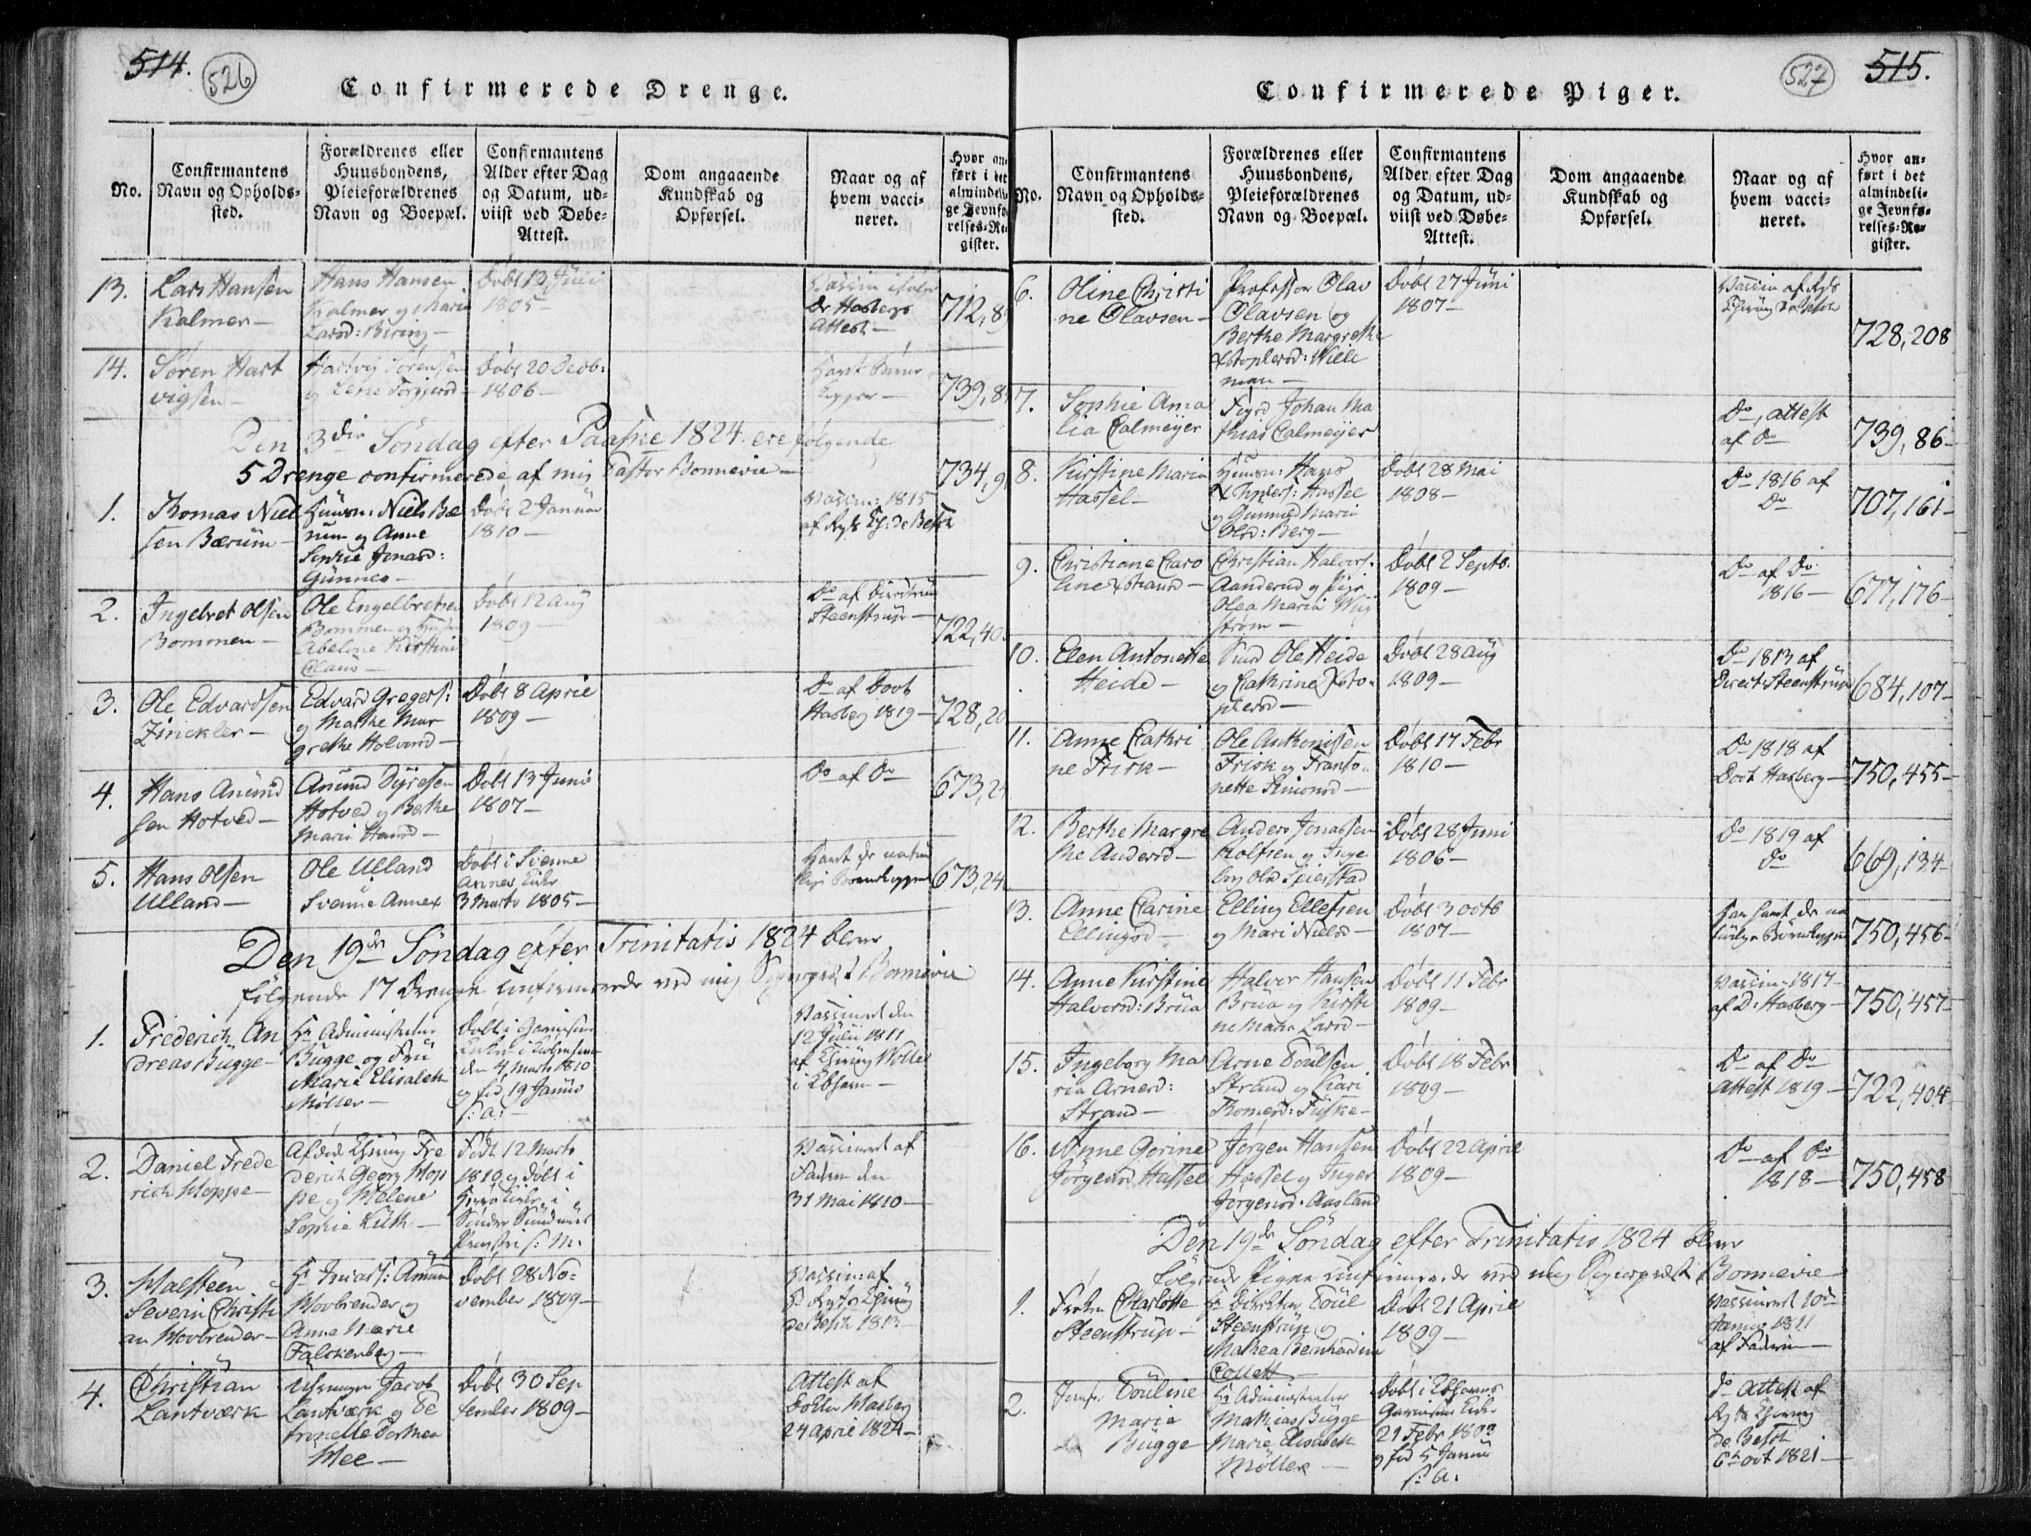 514.
526
Confirmerede Drenge.
No.
Confirmantens
Navn og Opholds-
sted.
Forældrenes eller
Huusbondens,
Pleieforældrenes
Navn og Boepæl.
Confirmantens
Alder efter Dag
og Datum, ud-
viist ved Døbe-
Attest.
Dom angaaende
Kundskab og
Opførsel.
Naar og af
hvem vacci-
neret.
Hvor an-
ført i det
almindeli-
ge Jevnfø-
relses-Re-
gister.
13.
Lars Hansen
Kalmer
Hans Hansen
Kalmer og Maria
Larsd: Biring
Døbt 13 Juni
1805
Dr Hasbergs
Attest
712,8
14.
Søren Hart
vigsen
Hartvig Sørensen
og
Døbt 20 Decb:
1806
739,8
Den 3die Søndag efter Paaske 1824 ere følgende
5 Drenge confirmerede af mig Pastor Bonnevie
734,9
1.
Thomas Niel
sen Bærum
Huusm: Niels Bæ
rum og Anne
Sophie Jonasd:
Gunnes
Døbt 2 Januar
1810
Vaccin: 1815
2.
Ingebret Olsen
Bommen
Ole Engelbretsen
Bommen og
Abelone Kirstine
Claus
Døbt 12 Aug
1809
Do af Direct
Steenstrup
722,40
3.
Ole Edvardsen
Zinckler
Edvard Gregers:
og Marthe Mar
grethe Halvord
Døbt 8 April
1809
Do af Doct
Hasberg 1819
728,20
4.
Hans Anund
sen Hotved
Anund Syvesen
Hotved og Berthe
Marie Hansd
Døbt 13 Juni
1807
Do af Do
673,24
5.
Hans Olsen
Ulland
Ole Ulland
Svenne Annex
Døbt i Svenne
Annex Kirke
3 Marts 1805
Havt de natur
lige Børnekopper
673,24
Den 19de Søndag efter Trinitatis 1824 bleve
følgende 17 Drenge confirmerede ved mig Sognepræst Bonnevie
1.
Frederich An
dreas Bugge
Hr Administrator
Bugge og Fru
Maria Elisabeth
Møller
Døbt i Garnisons
Kirke i Kiøbenhavn
den 4 Marts 1810
og fød 19 Januar
s: a:
Vaccineret den
12 Julii 1811
af Chirurg Møller
i Kbhavn
2.
Daniel Frede
rich Hoppe
Afdøde Chirurg Fre
derich Georg Hop
pe og Helene
Sophie
Født 12 Marts
1810 og døbt i
Herrø Kirke, i
Søndre Søndmørs
Provsti
Vaccineret af
Faderen den
31 Mai 1810
3.
Halsteen
Severin Christi
an Hovbrender
Hr
Hovbrender og
Anne Marie
Falckenberg
Døbt 28 No=
vember 1809
Vaccin: af
4.
Christian
Lantværk
Jacob
Lantværk og Pe
tronelle Dorthea
Mee
Døbt 30 Sep
tember 1809
Attest af
Doktor Hasberg
24 April 1824
515.
527
Confirmerede Piger.
No.
Confirmantens
Navn og Opholds-
sted.
Forældrenes eller
Huusbondens,
Pleieforældrenes
Navn og Boepæl.
Confirmantens
Alder efter Dag
og Datum, ud-
viist ved Døbe-
Attest.
Dom angaaende
Kundskab og
Opførsel.
Naar og af
hvem vacci-
neret.
Hvor an-
ført i det
almindeli-
ge Jevnfø-
relses-Re-
gister.
6.
Oline Christi
ne Olavsen
Professor Olav
Olavsen og
Berthe Margrethe
Xstophersd: Wille
man
Døbt 27 Juni
1807
728,208
7.
Sophie Ama
lia Calmeyer
Johan Ma
thias Calmeyer
Do, attest
af Do
739,86
8.
Kirstine Maria
Hassel
Huusm: Hans
Hassel
og Gunnild Maria
Olsd: Berg
Døbt 28 Mai
1808
Do 1816 af
Do
707,161
9.
Christiane Caro
line Xstiansd
Christian Halvors:
Aanderud og Pige
Olea Maria
strøm
Døbt 2 Septb.
1809
Do af Do
1816
677,176
10.
Elen Antonette
Heide
Ole Heide
og Cathrine Xsto=
phersd
Døbt 28 Aug
1809
Do 1813 af
Direct: Steenstrup
684,107
11.
Anne Cathri
ne Frisk
Ole Anthonissen
Frisk og Franto=
nette Simonsd
Døbt 17 Febr
1810
Do 1818 af
Doct Hasberg
750,455
12.
Berthe Margre
the Andersd
Anders Jonassen
Rolfsen og Inge
borg Olsd Seierstad
Døbt 28 Juni
1806
Do 1819 af
Do
669,134
13.
Anne Carine
Ellingsd
Elling Ellefsen
og Mari Nielsd
Døbt 3 Octb
1807
Har havt de na
turlige Børnekopper
750,456
14.
Anne Kirstine
Halvorsd: Brua
Halvor Hansen
Brua og Kirsti
ne Marie Larsd
Døbt 11 Febr
1809
Vaccin: 1817
af D: Hasberg
750,457
15.
Ingeborg Ma
ria Arnesd:
Strand
Arne Poulsen
Strand og Kari
Thomesd: Fiske
Døbt 18 Febr
1809
Do af Do
Attest 1819
722,404
16.
Anne Gorine
Jørgensd Hassel
Jørgen Hansen
Hassel og Inger
Jørgensd: Aasland
Døbt 22 April
1809
Do af Do
1818
750,458
Den 19de Søndag efter Trinitatis 1824 bleve
følgende Piger confirmerede ved mig Sognepræst Bonnevie
1.
Frøken Charlotte
Steenstrup
Hr Direktør Poul
Steenstrup og
Mathea Bernhardine
Collett
Døbt 21 April
1809
Vaccineret 20de
Januar 1811
af Faderen
2.
Jomfr Pouline
Maria
Bugge
Hr Administrator
Mathias Bugge
Marie Elisabeth
Møller
Døbt i Kbhavns
Garnisons Kirke
21 Febr
og fød 5 Januar
s: a:
Do Attest af
de Besche
6te Oct 1821